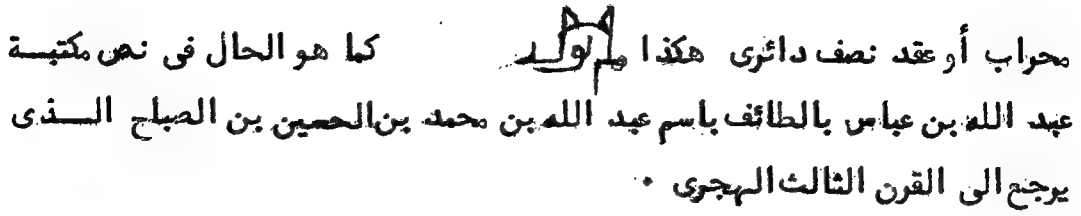 محراب أو عقد نصف دائرى هكذا كما هو الحال فى نص مكتبـــة
عبد الله بن عباس بالطائف باسم عبد الله بن محمد بن الحسين بن الصباح الـــذى
يرجع الى القرن الثالث الهجرى .